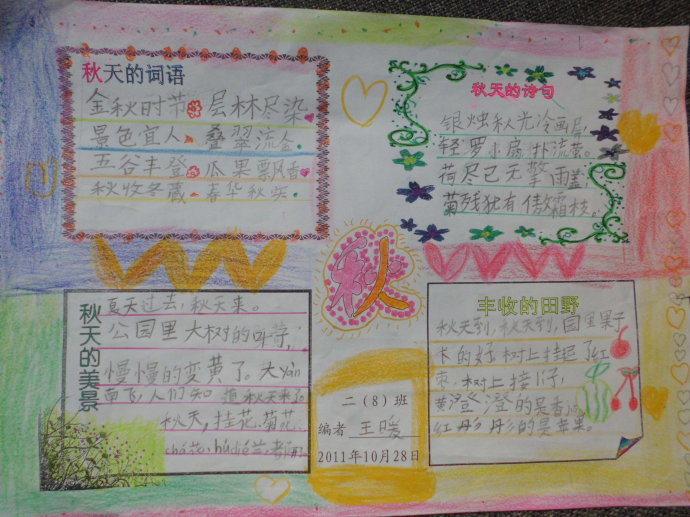 秋天的词语
金秋时节 层林尽染
景色宜人 叠翠流金
五谷丰登 瓜果飘香
秋收冬藏 春华秋实
秋天的诗句
银烛秋光冷画屏,
轻罗小扇扑流萤。
荷尽已无擎雨盖,
菊残犹有傲霜枝。
秋
秋天的美景
夏天过去,秋天来。
公园里大树的叶子,
慢慢的变黄了。大yàn
南飞,人们知道秋天来了
秋天,桂花、菊花、
二(8)班
编者 王暖
2011年10月28日
丰收的田野
秋天到,秋天到,园里果子
长的好,树上挂起了红
枣,树上接
黄澄澄的是香
红彤彤的是苹果。